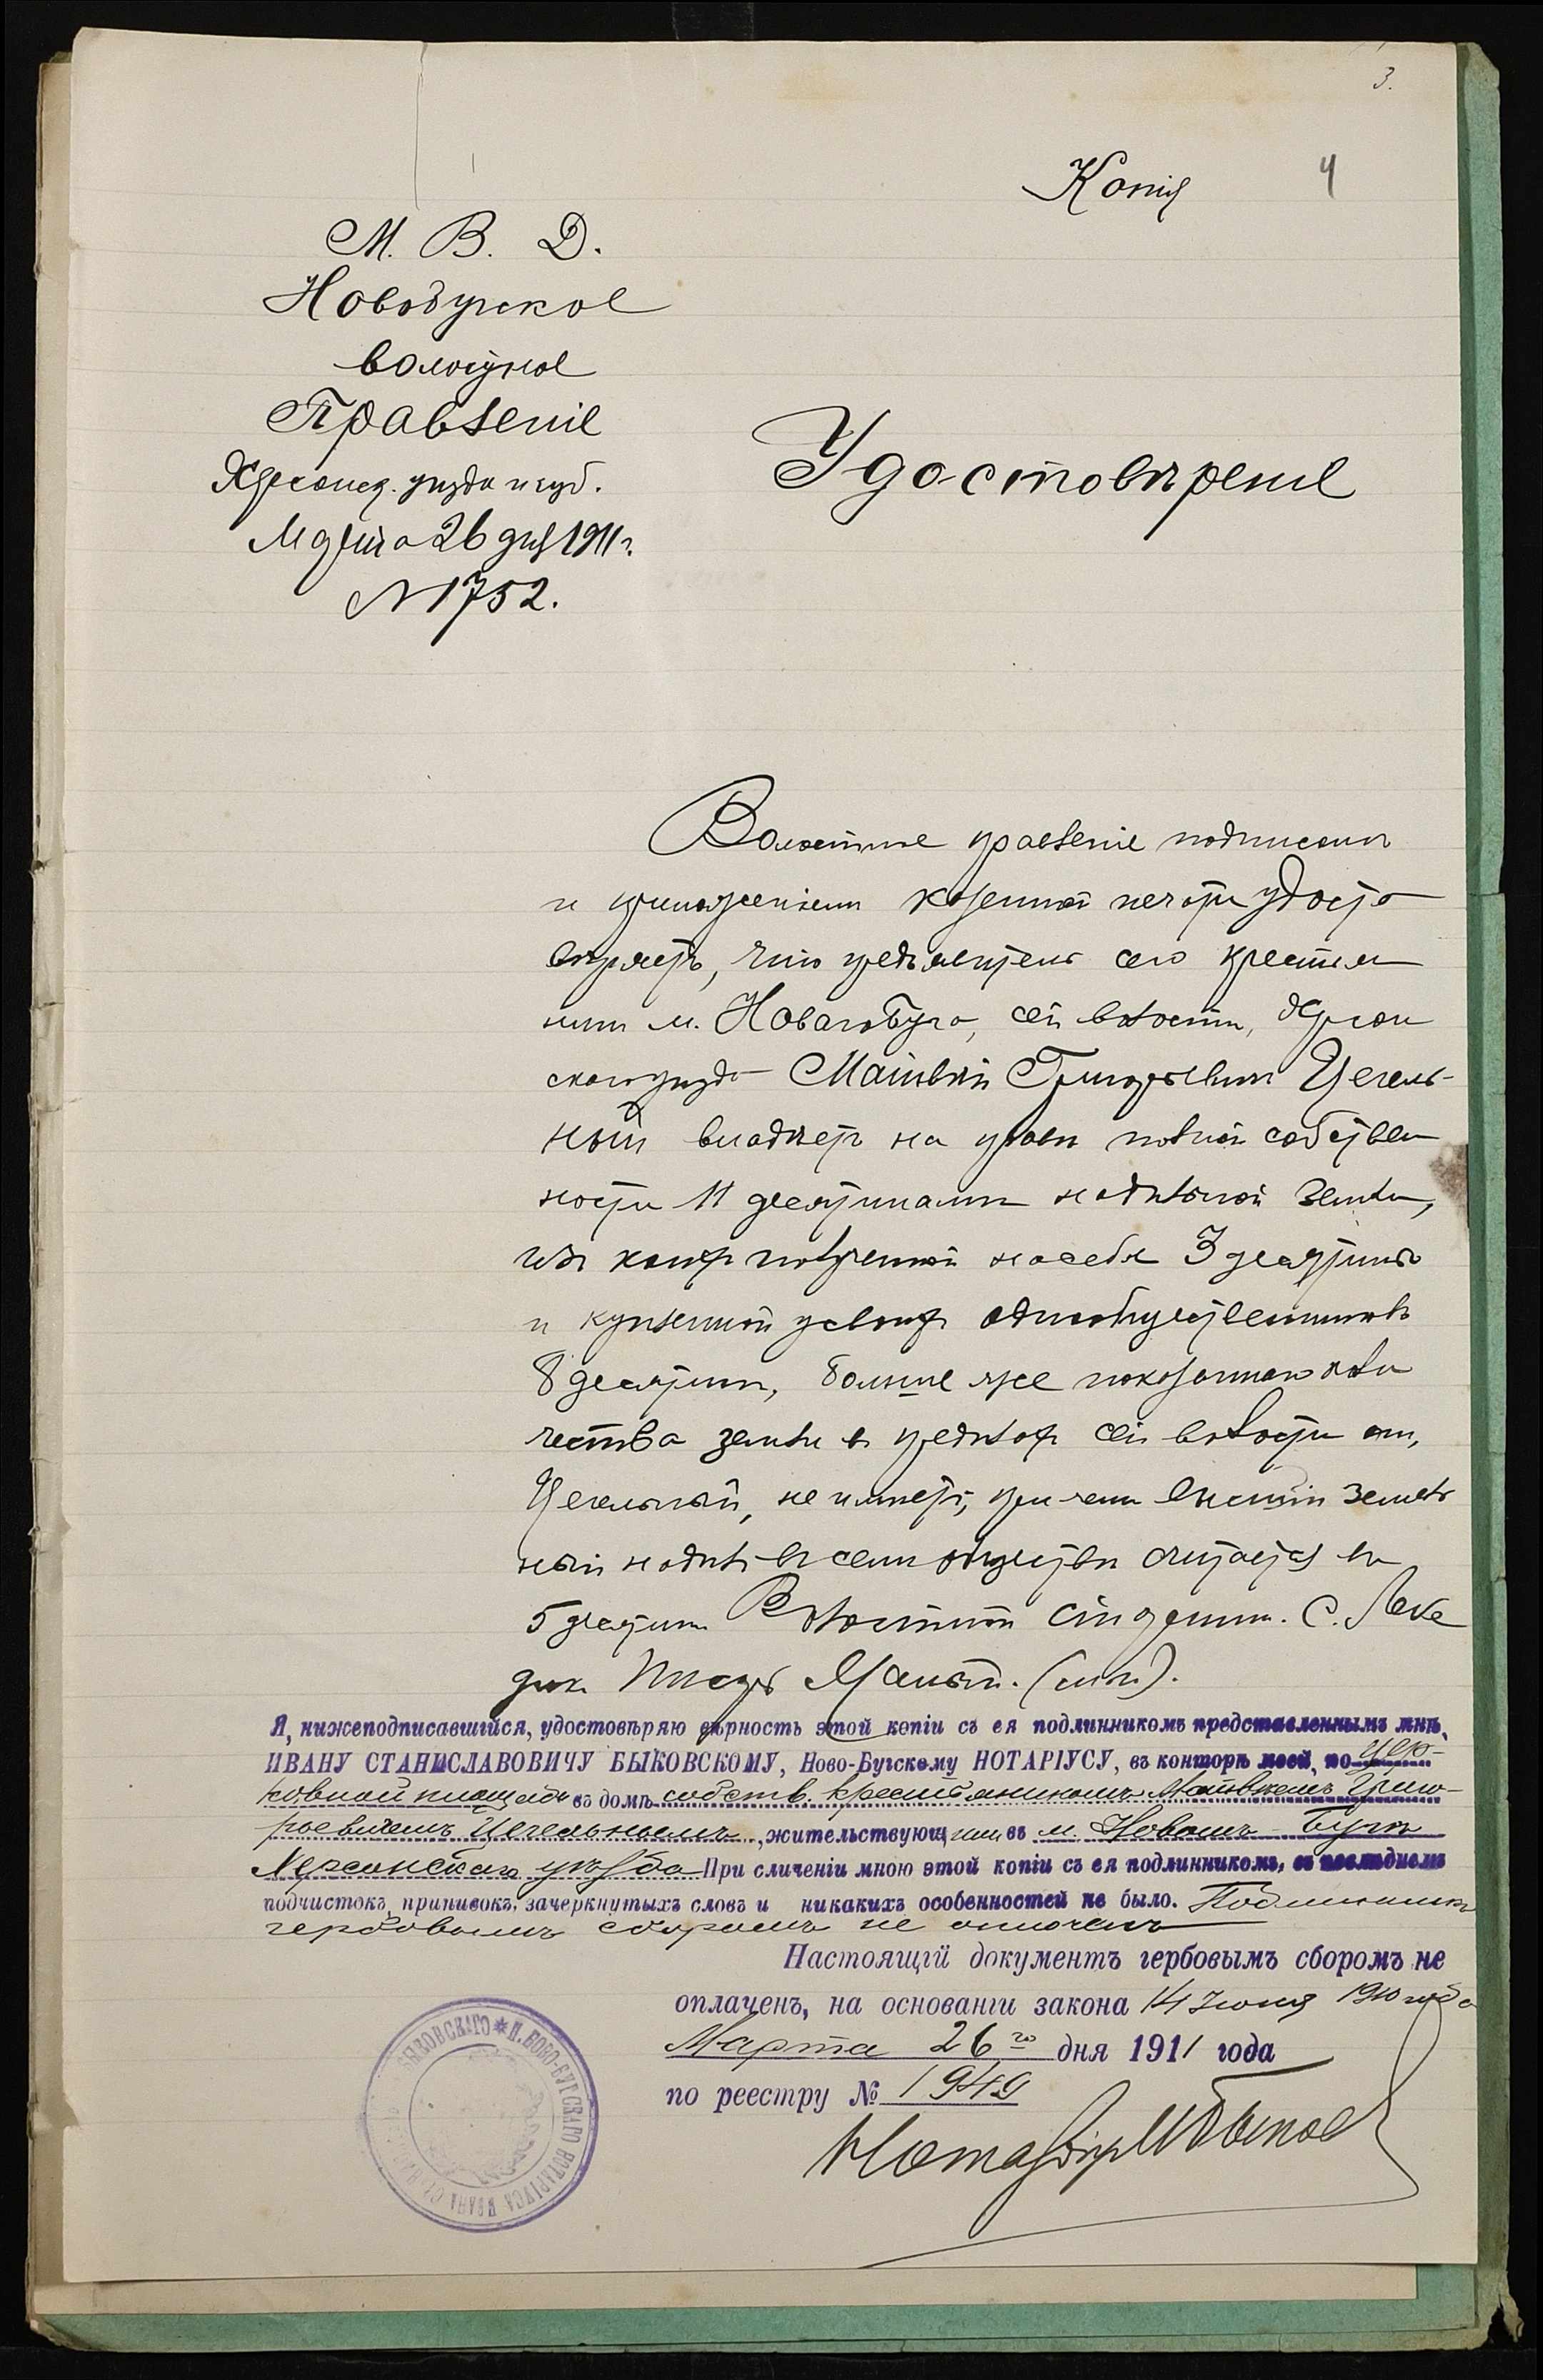 3.
Копія 4
М. В. Д.
Новобугское
волостное
Правленіе
Херсонск. уѣзда и губ.
Марта 26 дня 1911 г.
№ 1752.
Удостовѣреніе
Волостное правленіе подписомъ
и приложеніемъ казенной печати удосто
вѣряетъ, что предъявитель сего крестья
нинъ м. Новаго Буга, сей волости, Херсон
скаго уѣзда Матвѣй Григорьевичъ Цегель-
ный владѣетъ на правѣ полной собствен
ности 11 десятинами надѣльной земли,
изъ коихъ полученной на себя 3 десятины
и купленной у своихъ однообщественниковъ
8 десятинъ, больше же показаннаго коли
чества земли въ предѣлахъ сей волости онъ,
Цегельный, не имѣетъ, при чемъ высшій земель
ный надѣлъ въ семъ обществѣ считается въ
5 десятинъ Волостной Старшина. С.
Писарь (м.п.).
Я, нижеподписавшійся, удостовѣряю вѣрность этой копіи съ ея подлинникомъ представленнымъ мнѣ,
ИВАНУ СТАНИСЛАВОВИЧУ БЫКОВСКОМУ, Ново-Бугскому НОТАРІУСУ, въ конторѣ моей, по Цер-
ковной площади въ домѣ собств. крестьяниномъ Матвѣемъ Григо-
рьевичемъ Цегельнымъ, жительствующимъ въ м. Новомъ-Бугѣ
Херсонскаго уѣзда При сличеніи мною этой копіи съ ея подлинникомъ, въ послѣднемъ
подчистокъ, приписокъ, зачеркнутыхъ словъ и никакихъ особенностей не было. Подлинникъ
гербовымъ сборомъ не оплоченъ
Настоящій документъ гербовымъ сборомъ не
оплаченъ, на основаніи закона 14 Іюня 1910 года
Марта 26го дня 1911 года
по реестру № 1949
Нотаріусъ И Быков
БЫКОВСКАГО * Н. НОВО-БУГСКАГО НОТАРІУСА ИВАНА